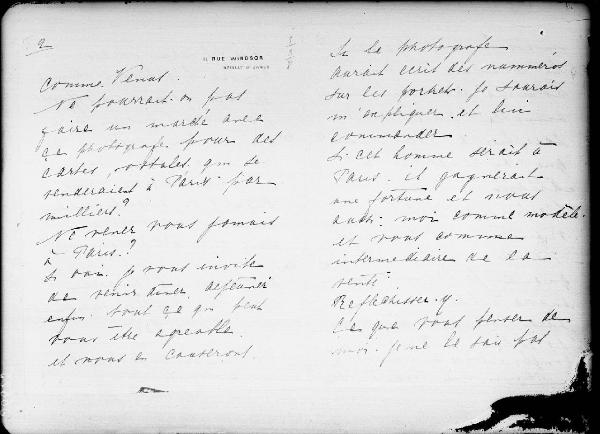 2
11 RUE WINDSOR
NEUILLY S/ SEINE
Comme Venus.
Ne pourrait-on pas
faire un marché avec
ce photografe pour des
cartes, postales, qui se
venderaient à Paris par
milliers?
Ne venez vous jamais
à Paris?
Si oui. je vous invite
de venir diner, déjeuner
enfin. tout ce qui peut
vous être agreable.
et nous en causerons.
Si le photografe
aurait ecrit des nummeros
sur les je saurais
m'expliquer et lui
commander
Si cet homme serait à
Paris. il gagnerait
une fortune et nous
aussi moi comme modèle.
et vous comme
intermediaire de la
vente.
Reflechissez-y.
Ce que vous penser de
moi. je ne le sais pas